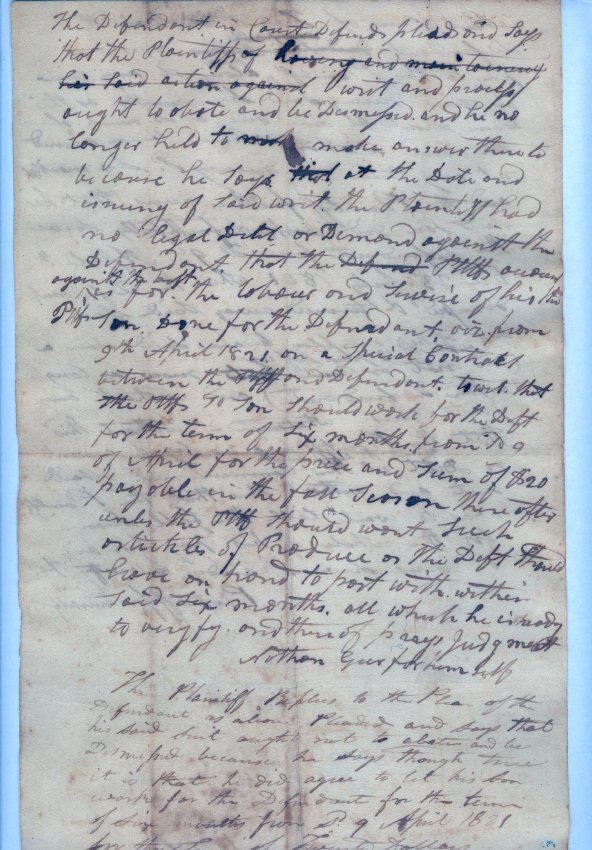 The Defendant in Court Defends pleads and Says
that the Plaintiffs of having and maintaining
his said action against writ and process
ought to abate and be Dismessed. and he no
longer held to make answer thereto
because he Says that at the Date and
issuing of Said writ. the Plaintiff had
no legal Debt, or Demand against the
Defendant. that the Defend Pltffs account
against the Deft
is for the labour and Service of his the
Pltfs Son. Done for the Defendant, viz. from
9th April 1821. on a Special Contract
between the Pltff and Defendant, towit. that
the Pltfs Son should work for the Deft
for the term of Six months from 9
of April for the price and Sum of $20
payable in the fall Season there after
unless the Pltff should want Such
artickles of Produce as the Deft Should
have on hand to part with. within
Said Six months. all which he is ready
to veryfy. and thereof prays Judgment
Nathan for himself
The Plaintiff Replies to the Plea of the
Defendant as above Pleaded and says that
his said suit ought not to abate and be
Dismessed because he says though true
it is that he did agree to let his son
work for the Defendant for the term
of six months from 9 April 1821
for the Sum of Twenty Dollars